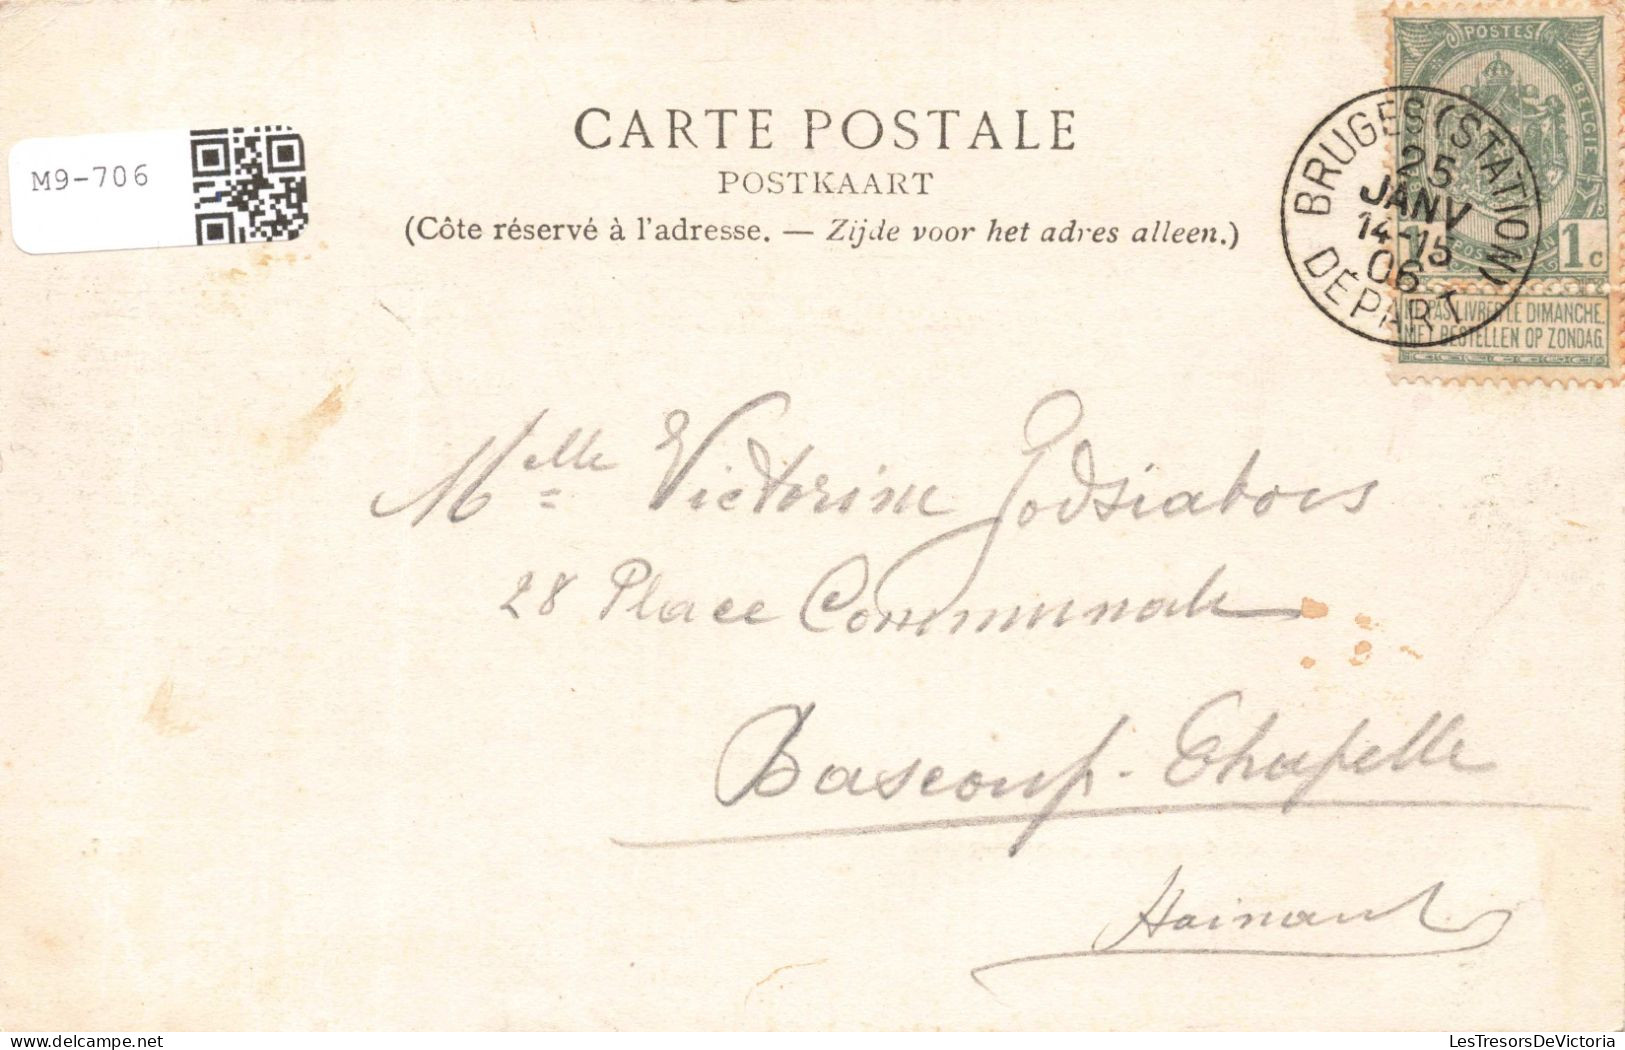 CARTE POSTALE
POSTKAART
(Côte réservé à l'adresse. — Zijde voor het adres alleen.)
M9-706
POSTES
BELGIE
1c
NE PAS LIVRER LE DIMANCHE.
NIET BESTELLEN OP ZONDAG.
BRUGES (STATION)
25
JANV
14-15
06
DÉPART
Melle Victorine Godsiabois
28 Place Communale
Bascoup-Chapelle
Hainaut
LesTresorsDeVictoria